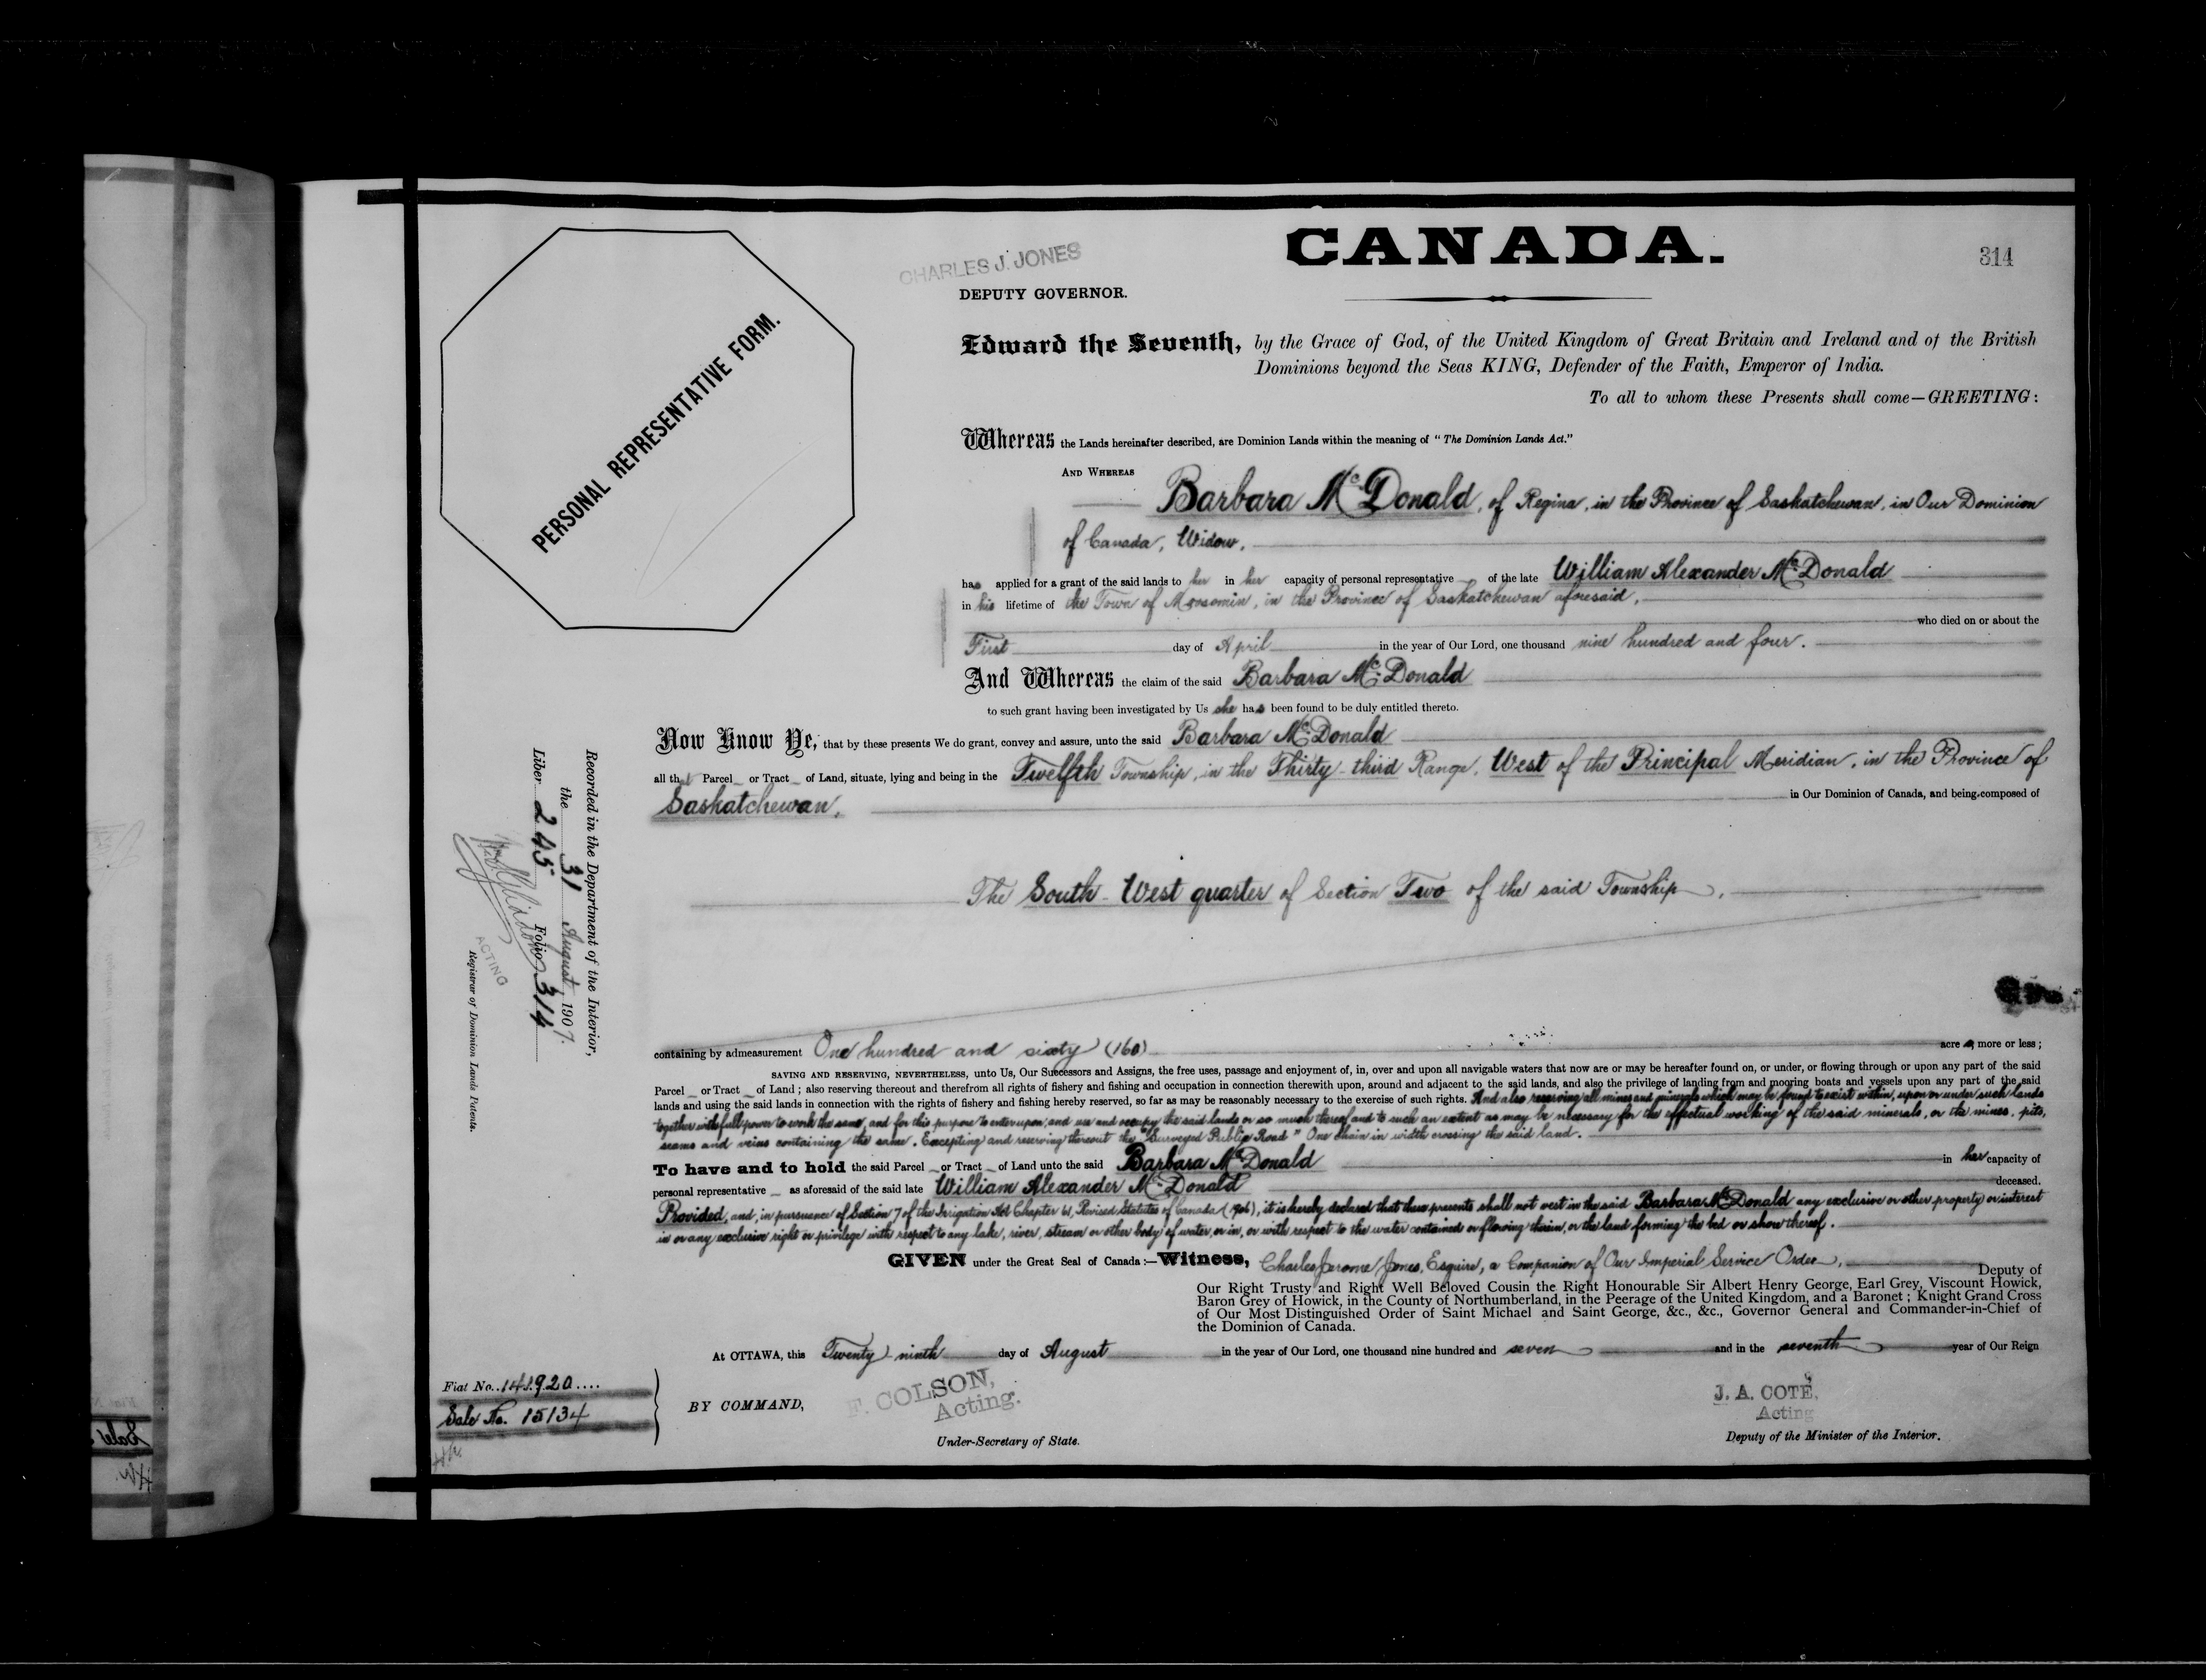 CANADA.
314
CHARLES J. JONES
DEPUTY GOVERNOR.
PERSONAL REPRESENTATIVE FORM.
Edward the Seventh, by the Grace of God, of the United Kingdom of Great Britain and Ireland and of the British
Dominions beyond the Seas KING, Defender of the Faith, Emperor of India.
To all to whom these Presents shall come—GREETING:
Whereas the Lands hereinafter described, are Dominion Lands within the meaning of "The Dominion Lands Act."
AND WHEREAS
Barbara McDonald, of Regina, in the Province of Saskatchewan, in Our Dominion
of Canada, Widow,
has applied for a grant of the said lands to her in her capacity of personal representative of the late William Alexander McDonald
in his lifetime of the Town of Moosomin, in the Province of Saskatchewan aforesaid,
who died on or about the
First day of April in the year of Our Lord, one thousand nine hundred and four.
And Whereas the claim of the said Barbara McDonald
to such grant having been investigated by Us she has been found to be duly entitled thereto.
Now Know Ye, that by these presents We do grant, convey and assure, unto the said Barbara McDonald
all that Parcel or Tract of Land, situate, lying and being in the Twelfth Township, in the Thirty-third Range, West of the Principal Meridian, in the Province of
Saskatchewan, in Our Dominion of Canada, and being composed of
The South-West quarter of Section Two of the said Township,
containing by admeasurement One hundred and sixty (160) acres, more or less;
SAVING AND RESERVING, NEVERTHELESS, unto Us, Our Successors and Assigns, the free uses, passage and enjoyment of, in, over and upon all navigable waters that now are or may be hereafter found on, or under, or flowing through or upon any part of the said
Parcel or Tract of Land; also reserving thereout and therefrom all rights of fishery and fishing and occupation in connection therewith upon, around and adjacent to the said lands, and also the privilege of landing from and mooring boats and vessels upon any part of the said
lands and using the said lands in connection with the rights of fishery and fishing hereby reserved, so far as may be reasonably necessary to the exercise of such rights. And also reserving all mines and minerals which may be found to exist within, upon or under such lands
together with full power to work the same, and for this purpose to enter upon, and use and occupy the said lands or so much thereof and to such an extent as may be necessary for the effectual working of the said minerals, or the mines, pits,
seams and veins containing the same. Excepting and reserving thereout the "Surveyed Public Road" One chain in width crossing the said land.
To have and to hold the said Parcel or Tract of Land unto the said Barbara McDonald in her capacity of
personal representative as aforesaid of the said late William Alexander McDonald deceased.
Provided, and, in pursuance of Section 7 of the Irrigation Act Chapter 61, Revised Statutes of Canada (1906), it is hereby declared that these presents shall not vest in the said Barbara McDonald any exclusive or other property or interest
in or any exclusive right or privilege with respect to any lake, river, stream or other body of water, or in, or with respect to the water contained or flowing therein, or the land forming the bed or shore thereof.
GIVEN under the Great Seal of Canada:—Witness, Charles Jerome Jones, Esquire, a Companion of Our Imperial Service Order, Deputy of
Our Right Trusty and Right Well Beloved Cousin the Right Honourable Sir Albert Henry George, Earl Grey, Viscount Howick,
Baron Grey of Howick, in the County of Northumberland, in the Peerage of the United Kingdom, and a Baronet; Knight Grand Cross
of Our Most Distinguished Order of Saint Michael and Saint George, &c., &c., Governor General and Commander-in-Chief of
the Dominion of Canada.
At OTTAWA, this Twenty-ninth day of August in the year of Our Lord, one thousand nine hundred and seven and in the seventh year of Our Reign
BY COMMAND,
F. COLSON,
Acting.
Under-Secretary of State.
J. A. COTÉ,
Acting
Deputy of the Minister of the Interior.
Fiat No. 141920
Sale No. 15134
Recorded in the Department of the Interior,
the 31 August, 1907.
Liber 245 Folio 314
ACTING
Registrar of Dominion Lands Patents.